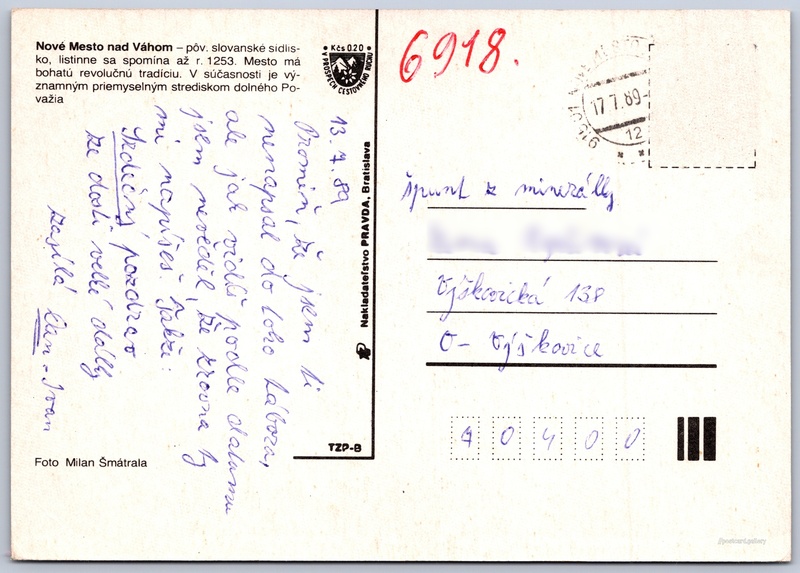 Nové Mesto nad Váhom – pôv. slovanské sídlis-
ko, listinne sa spomína až r. 1253. Mesto má
bohatú revolučnú tradíciu. V súčasnosti je vý-
znamným priemyselným strediskom dolného Po-
važia
Kčs 0,20
A PROSPĚCH CESTOVNÉHO RUCHU
13. 7. 89
Promiň, že jsem ti
nenapsal do toho tábora,
ale jak vidíš podle datumu
jsem nevěděl, že zrovna ty
mi napíšeš. Takže:
Srdečný pozdrav
ze dosti velké dálky
zasílá Člen - Ivan
Foto Milan Šmátrala
TZP-B
Nakladateľstvo PRAVDA, Bratislava
6918.
17.7.89-
12
špunt z minerálky
Výškovická 138
O - Výškovice
40400